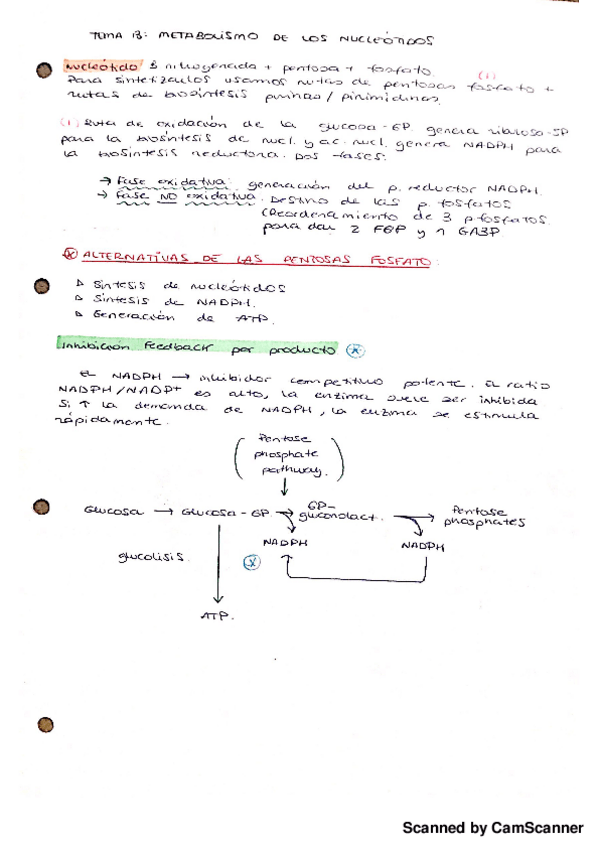 TEMA 13: METABOLISMO DE LOS NUCLEÓTIDOS
Nucleótido B nitrogenada + pentosa + fosfato.
Para sintetizarlos usamos rutas de pentosas fosfato + (1)
rutas de biosíntesis purinas/pirimidinas.
(1) Ruta de oxidación de la glucosa-6P. genera ribulosa-5P
para la biosíntesis de nucl. y ac. nucl. genera NADPH para
la biosíntesis reductora. Dos fases:
→ Fase oxidativa: generación del p. reductor NADPH.
→ Fase NO oxidativa. Destino de las p. fosfatos
(Reordenamiento de 3 p fosfatos
para dar 2 F6P y 1 GA3P
ALTERNATIVAS DE LAS PENTOSAS FOSFATO:
▷ Síntesis de nucleótidos
▷ Síntesis de NADPH.
▷ Generación de ATP.
Inhibición Feedback por producto *
El NADPH → inhibidor competitivo potente. El ratio
NADPH/NADP+ es alto, la enzima suele ser inhibida
Si ↑ la demanda de NADPH, la enzima se estimula
rápidamente.
(Pentose
phosphate
pathway.)
Glucosa → Glucosa-6P. → 6P-gluconolact. → Pentose phosphates
NADPH NADPH
glucolisis.
ATP.
Scanned by CamScanner